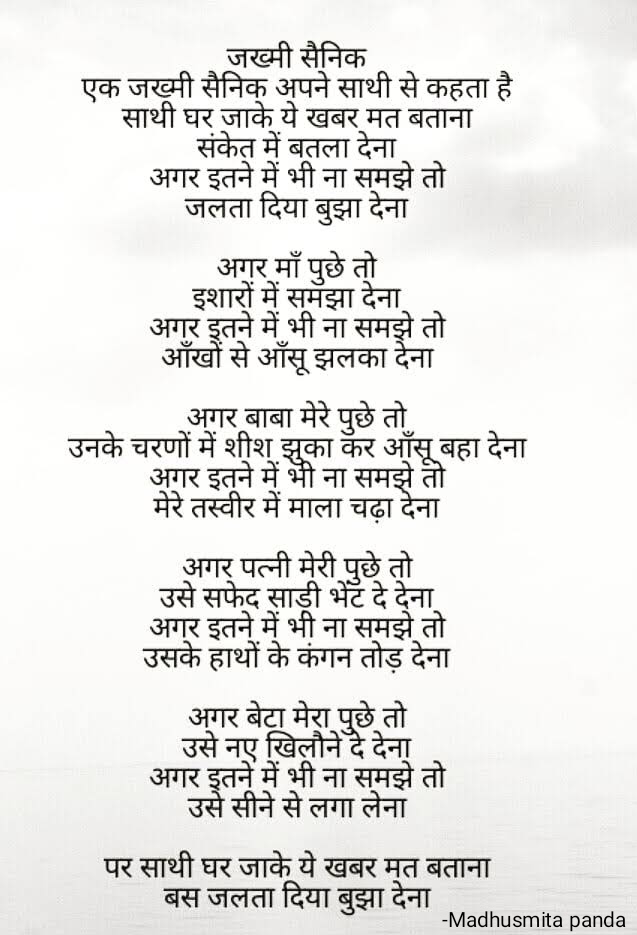 जख्मी सैनिक
एक जख्मी सैनिक अपने साथी से कहता है
साथी घर जाके ये खबर मत बताना
संकेत में बतला देना
अगर इतने में भी ना समझे तो
जलता दिया बुझा देना
अगर माँ पुछे तो
इशारों में समझा देना
अगर इतने में भी ना समझे तो
आँखों से आँसू झलका देना
अगर बाबा मेरे पुछे तो
उनके चरणों में शीश झुका कर आँसू बहा देना
अगर इतने में भी ना समझे तो
मेरे तस्वीर में माला चढ़ा देना
अगर पत्नी मेरी पुछे तो
उसे सफेद साड़ी भेंट दे देना
अगर इतने में भी ना समझे तो
उसके हाथों के कंगन तोड़ देना
अगर बेटा मेरा पुछे तो
उसे नए खिलौने दे देना
अगर इतने में भी ना समझे तो
उसे सीने से लगा लेना
पर साथी घर जाके ये खबर मत बताना
बस जलता दिया बुझा देना
-Madhusmita panda